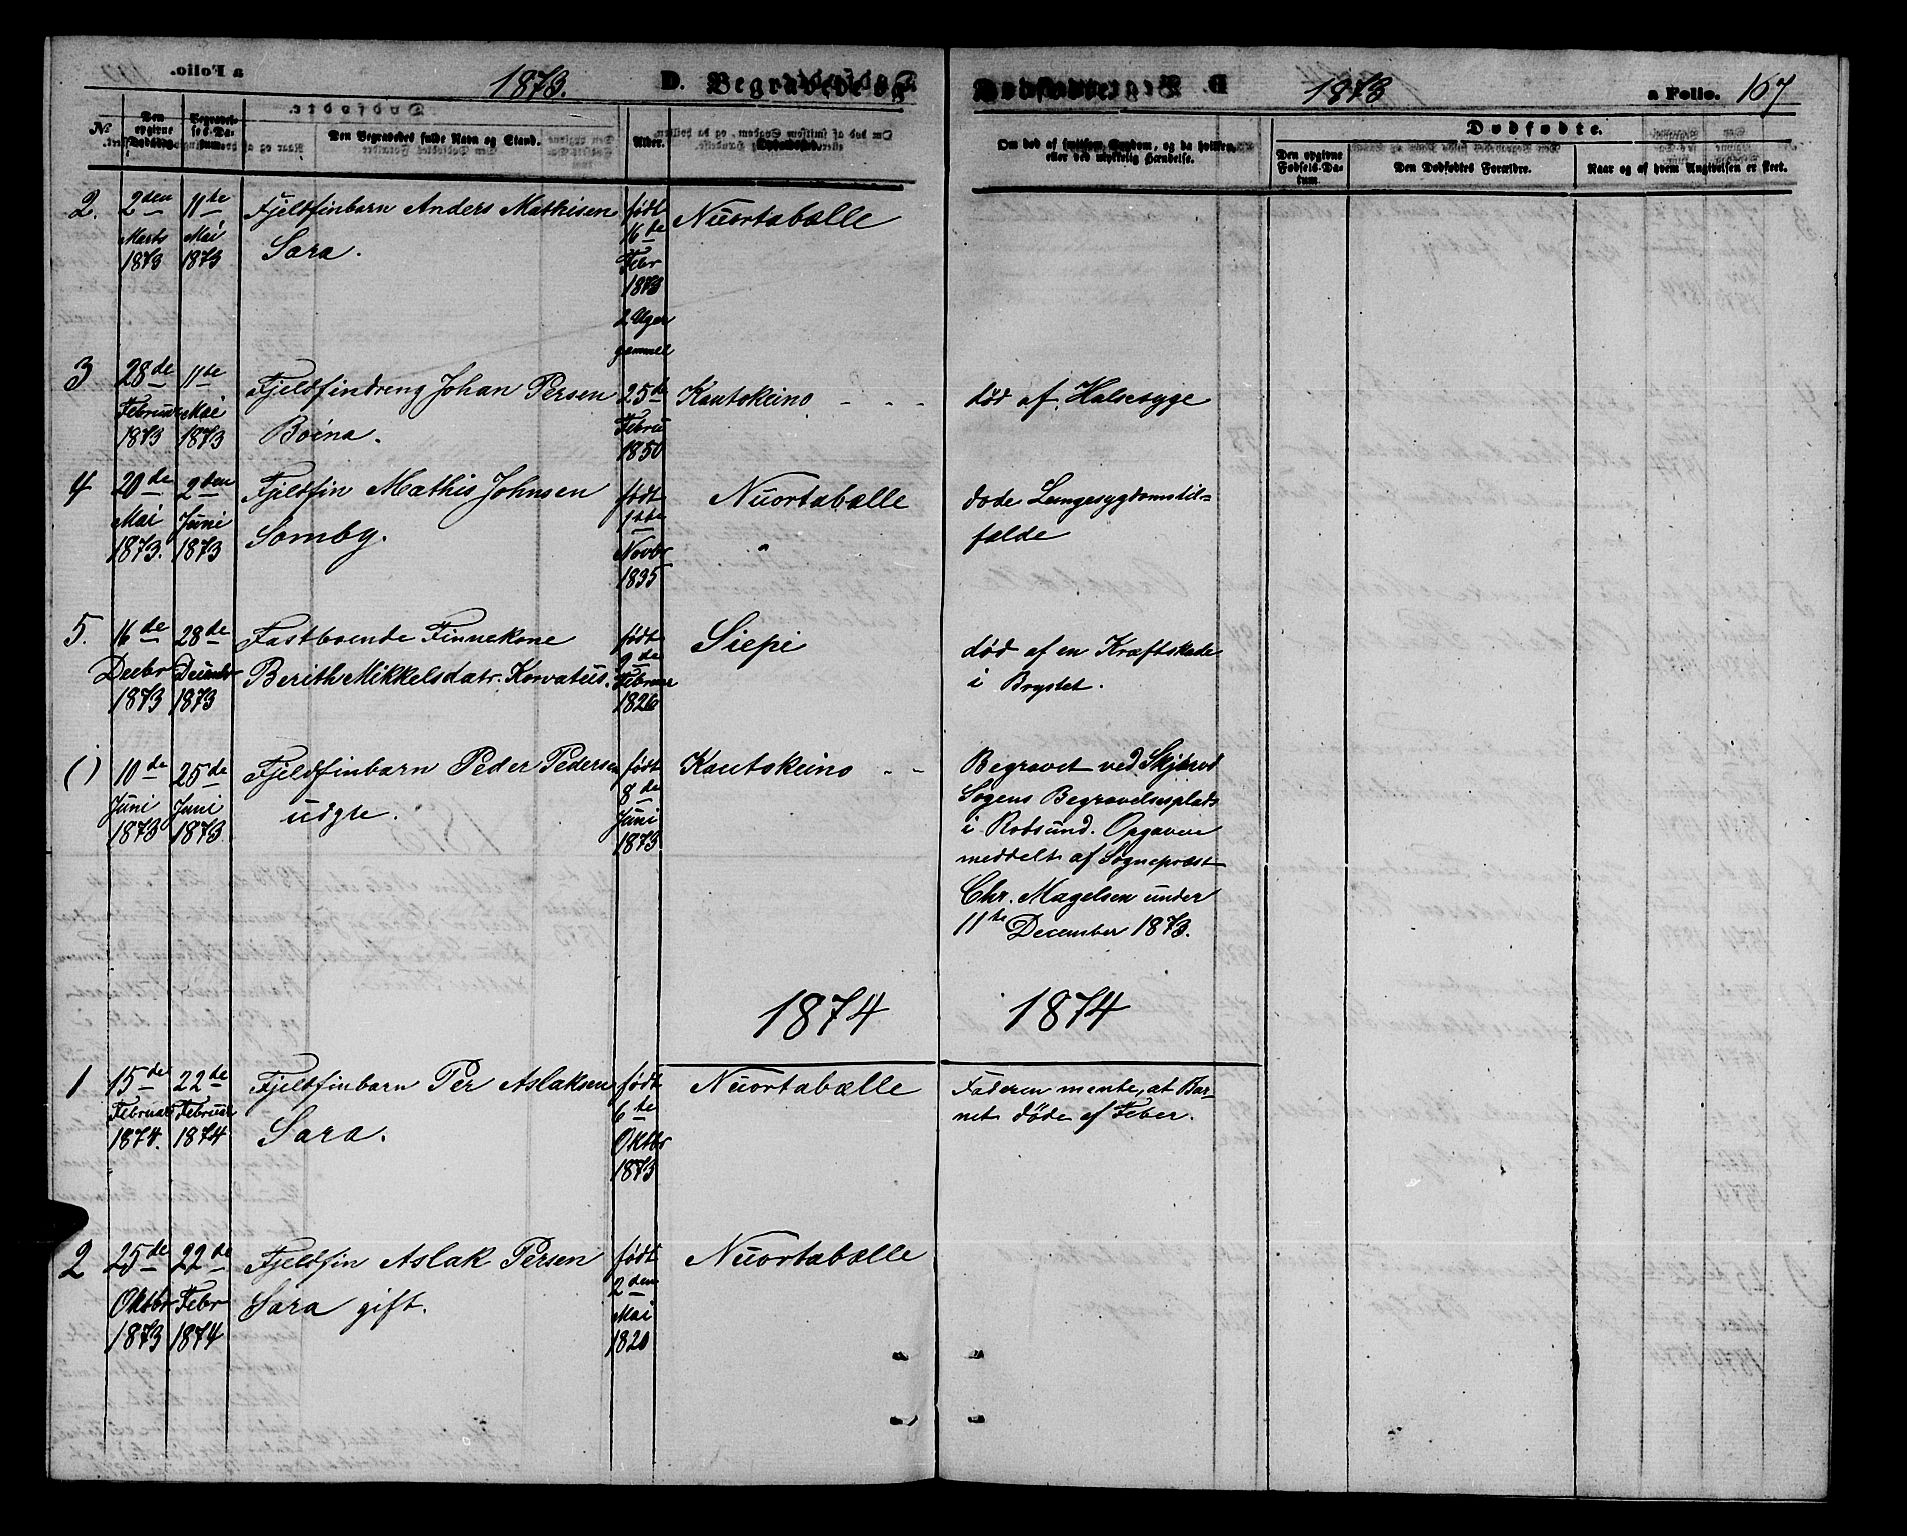 a Folio.
1873.
D. Begravede og
Dødfødte.
1873
a Folio. 167
No
Den opgivne Dødsdag.
Begravelses-Datum.
Den Begravedes fulde Navn og Stand.
Alder.
Om død af smitsom Sygdom, og da hvilken, eller ved ulykkelig Hændelse.
Dødfødte.
Den opgivne Fødsels-Datum.
Den Dødfødtes Forældre.
Naar og af hvem Angivelsen er skeet.
2. 2den Marts 1873
11te Mai 1873
Fjeldfinbarn Anders Mathisen
Sara.
født 16de Febr 1873 2 Uger gammel
Nuortabælle
3 28de Februar 1873
11te Mai 1873
Fjeldfindreng Johan Persen
Boine.
25de Febru 1850
Kautokeino - - -
død af Halsesyge
4 20de Mai 1873.
2den Juni 1873
Fjeldfin Mathis Johnsen
Somby.
født 1ste Novbr 1835
Nuortabælle
døde Lungesygdomstil-
fælde
5. 16de Decbr 1873
28de Decembr 1873
Fastboende Finnekone
Berith Mikkelsdatr. Korvatus.
født 2de Februar 1826
Siepi
død af en Kræftskade
i Brystet.
() 10de Juni 1873
25de Juni 1873.
Fjeldfinbarn Peder Pedersen
udgte.
født 8de Juni 1873
Kautokeino - -
Begravet ved Skjærvø
Sogens Begravelsesplads
i Rotsund. Opgaven
meddelt af Sognepræst
Chr. Magelsen under
11te December 1873.
1874
1874
1 15de Februar 1874.
22de Februar 1874
Fjeldfinbarn Per Aslaksen
Sara.
født 6te Oktbr 1873
Nuortabælle
Faderen mente, at Bar-
net døde af Feber.
2 25de Oktbr 1873
22de Febr 1874
Fjeldfin Aslak Persen
Sara gift.
født 2den Mai 1820
Nuortabælle